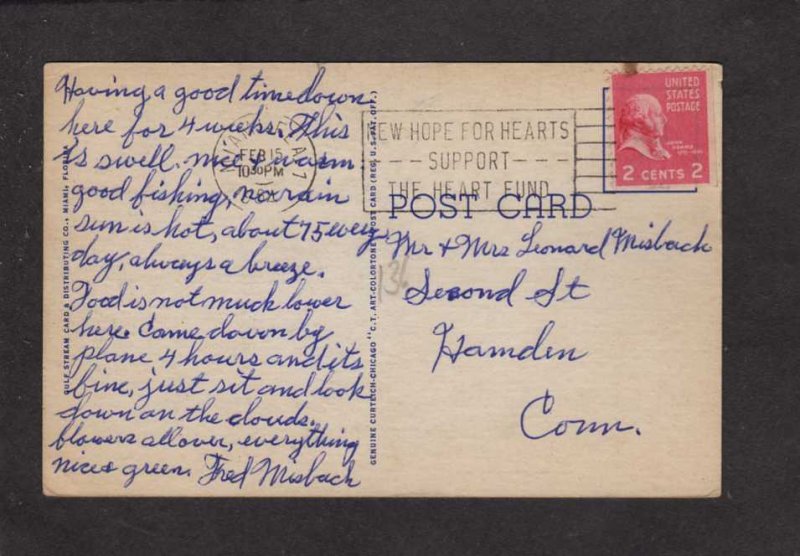 Having a good time down
here for 4 weeks. This
is swell. nice & warm
good fishing, no rain
sun is hot, about 75 every
day, always a breeze.
Food is not much lower
here. Came down by
plane 4 hours and its
fine, just sit and look
down on the clouds.
flowers all over, everything
nice & green. Fred Misbach
GULF STREAM CARD & DISTRIBUTING CO., MIAMI, FLORIDA
GENUINE CURTEICH-CHICAGO "C.T. ART-COLORTONE" POST CARD (REG. U.S. PAT. OFF.)
MIAMI
FEB 15
10 30 PM
NEW HOPE FOR HEARTS
-- SUPPORT --
THE HEART FUND
UNITED
STATES
POSTAGE
JOHN
ADAMS
2 CENTS 2
POST CARD
Mr & Mrs Leonard Misbach
Second St
Hamden
Conn.
136